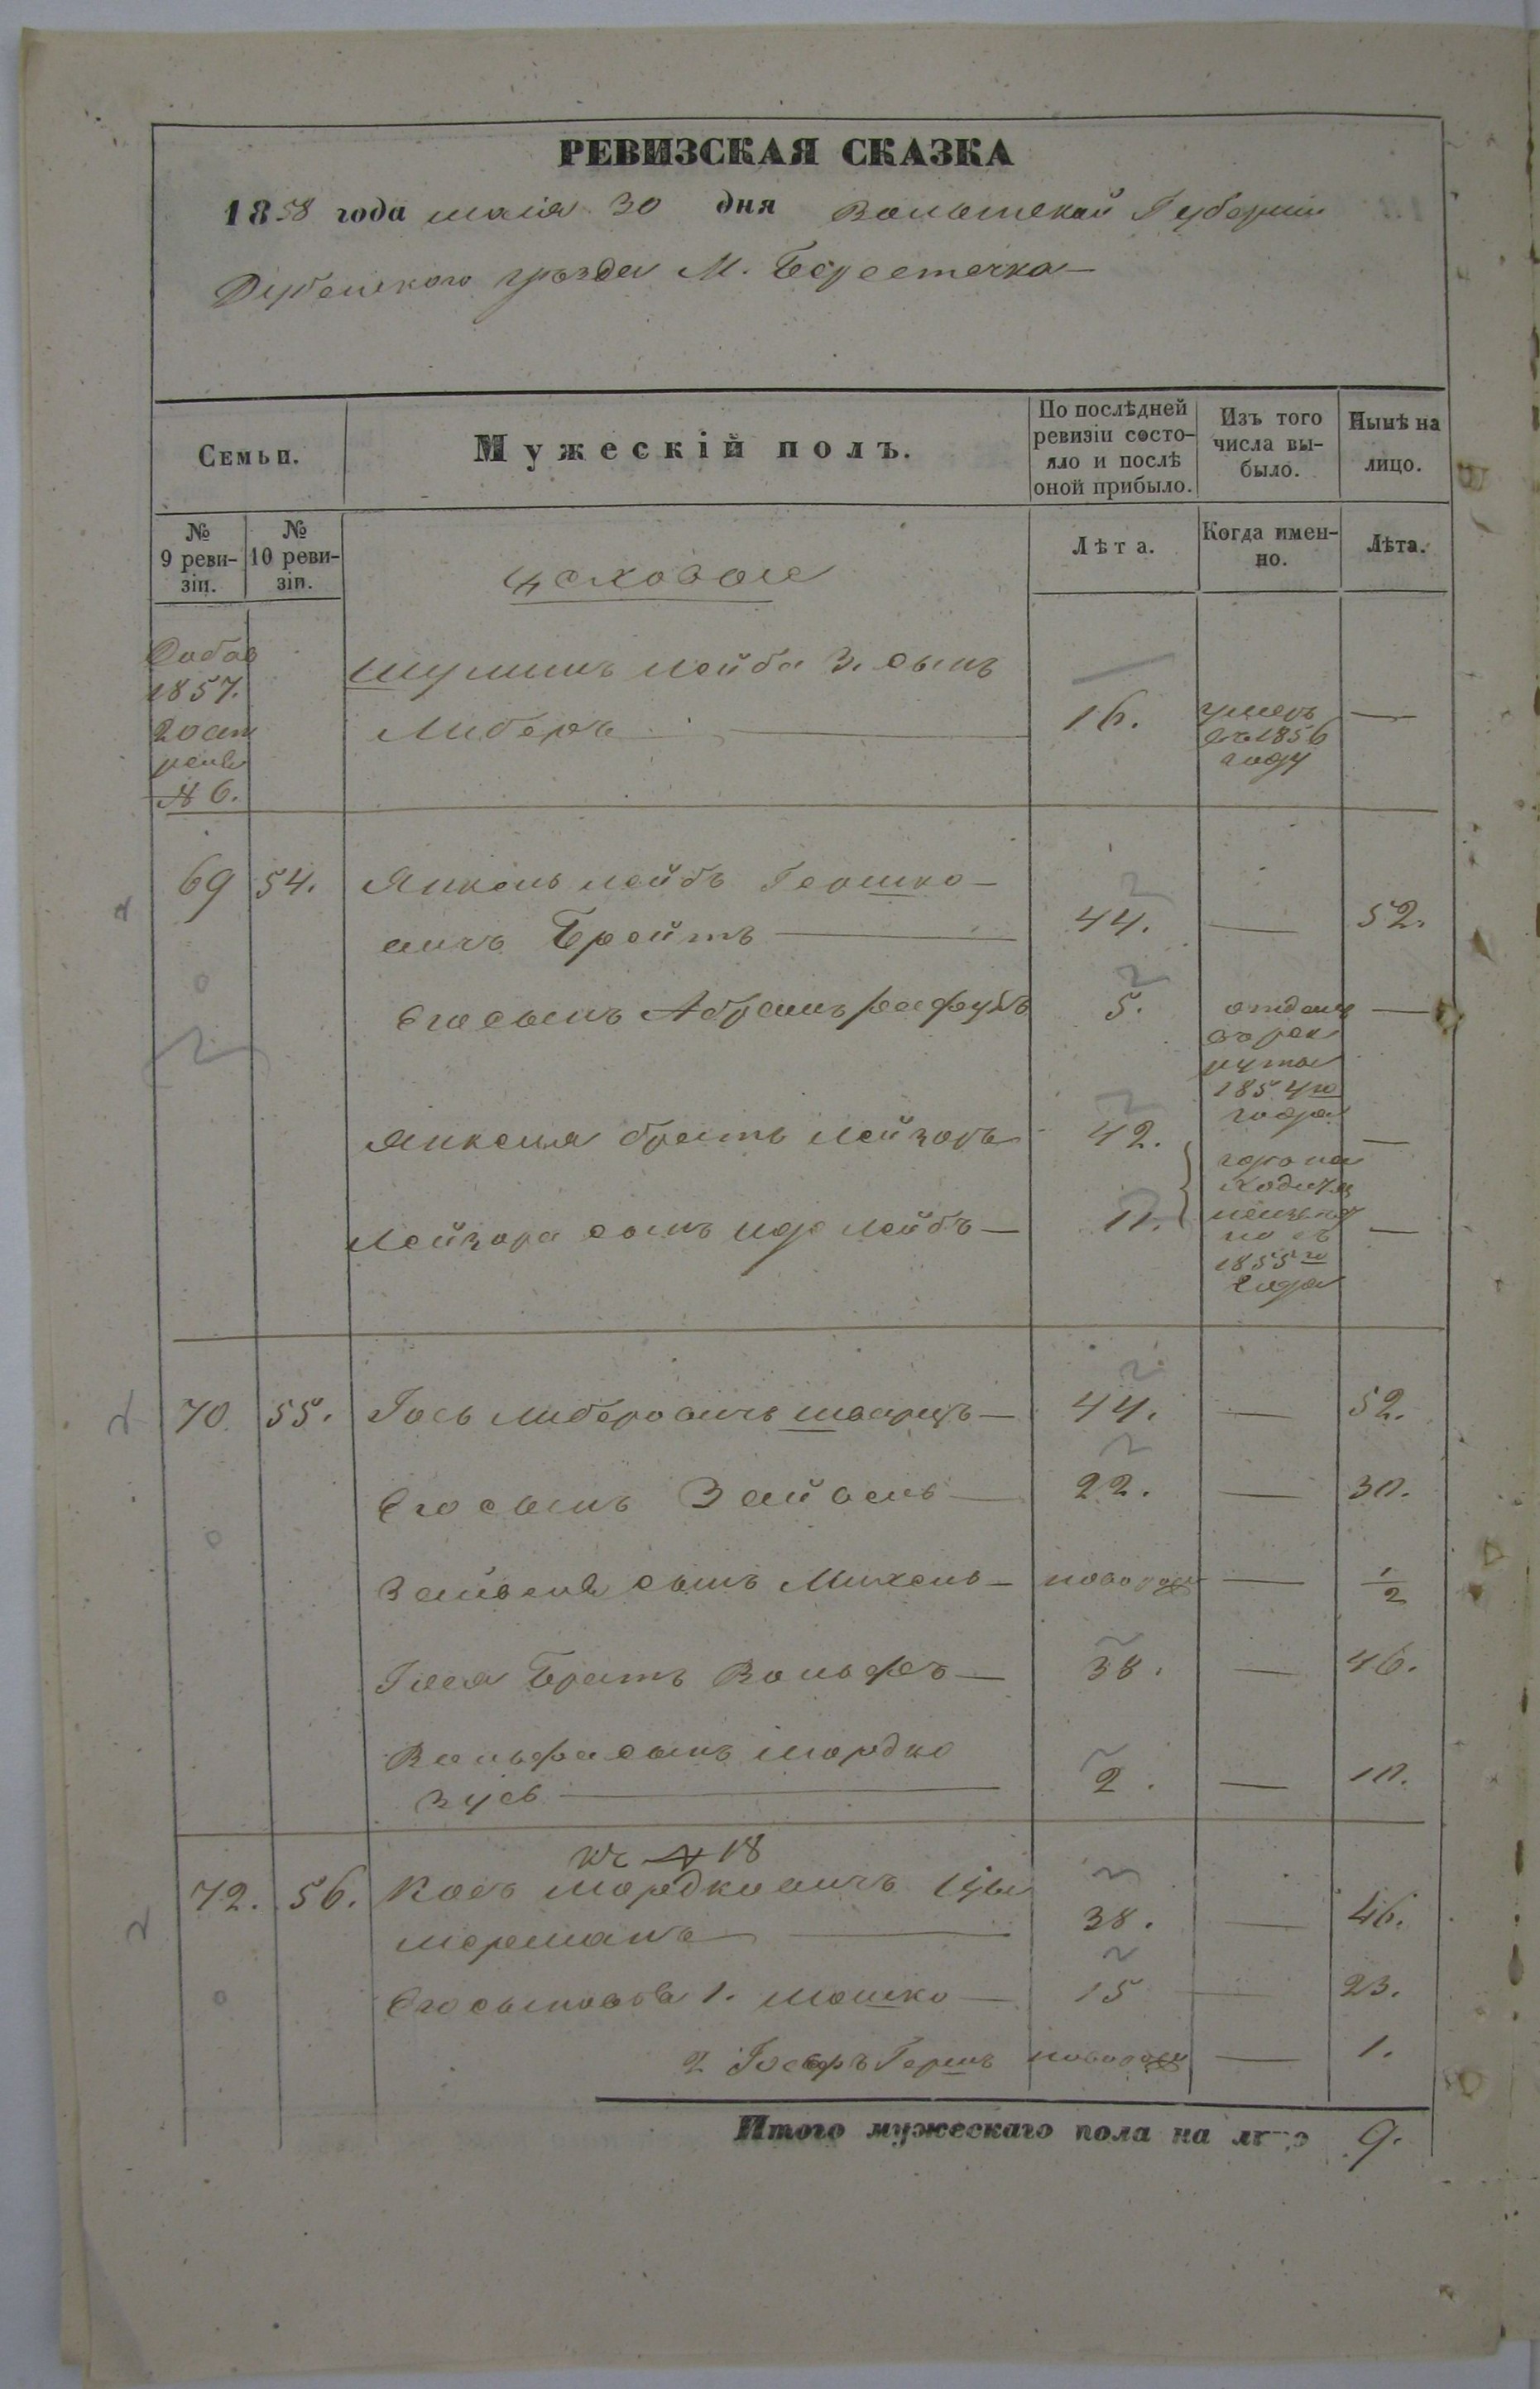 РЕВИЗСКАЯ СКАЗКА
1858 года маія 30 дня Волынской Губерніи
Дубенского уѣзда М. Берестечка
Семьи.
Мужескій полъ.
По послѣдней ревизіи состо-
яло и послѣ
оной прибыло.
Изъ того
числа вы-
было.
Нынѣ на
лицо.
№
9 реви-
зіи.
№
10 реви-
зіи.
цеховые
Лѣта.
Когда имен-
но.
Лѣта.
1857.
№ 6.
Шулимъ Лейба 3. сынъ
Либеръ — 16. умеръ въ 1856 году —
69 54. Янкель Лейбъ Гершко-
вичъ Брейтъ — 44. — 52.
Его сынъ Абрамъ 5. отданъ
въ рек
руты
1854го
года —
Янкеля братъ Лейзоръ 42. —
Лейзора сынъ Лейбъ — 11. —
1855го
года
70. 55. Іось Либеровичъ Шварцъ — 44. — 52.
Его сынъ Зайвель — 22. — 30.
Зайвеля сынъ Михель — новорож — 1/2
Іося Братъ Вольфъ — 38. — 46.
Вольфа сынъ Мордко
Зусь — 2. — 10.
№ 18
72. 56. Мордковичъ Ци
мерманъ — 38. — 46.
Его сыновья 1. Мошко — 15 — 23.
2 Іосефъ Гершъ новорож — 1.
Итого мужескаго пола на лицо 9.